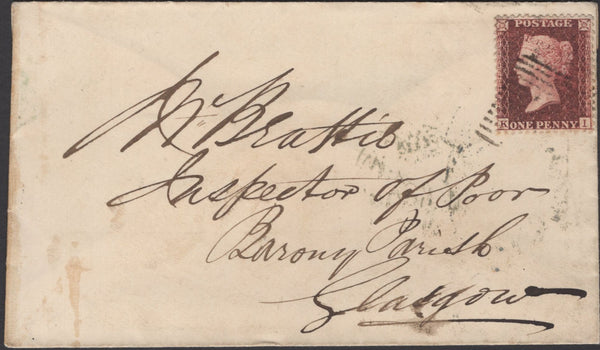 POSTAGE
K ONE PENNY I
Mr Beattie
Inspector of Poor
Barony Parish
Glasgow